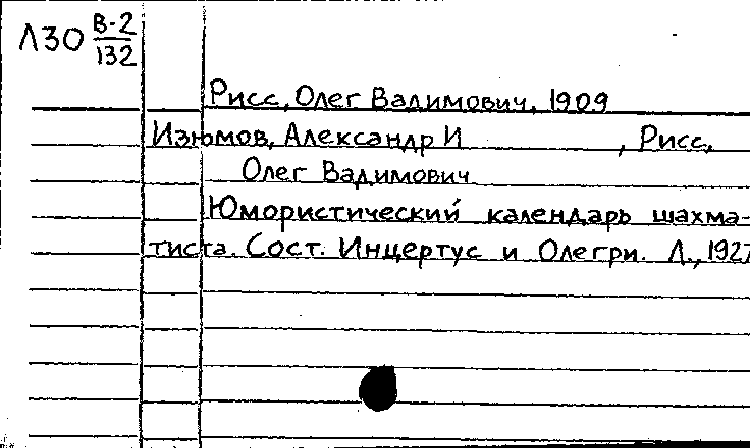 Л30 В-2
132
Рисс, Олег Вадимович, 1909
Изюмов, Александр И , Рисс,
Олег Вадимович
Юмористический календарь шахма-
тиста. Сост. Инцертус и Олегри. Л., 1927